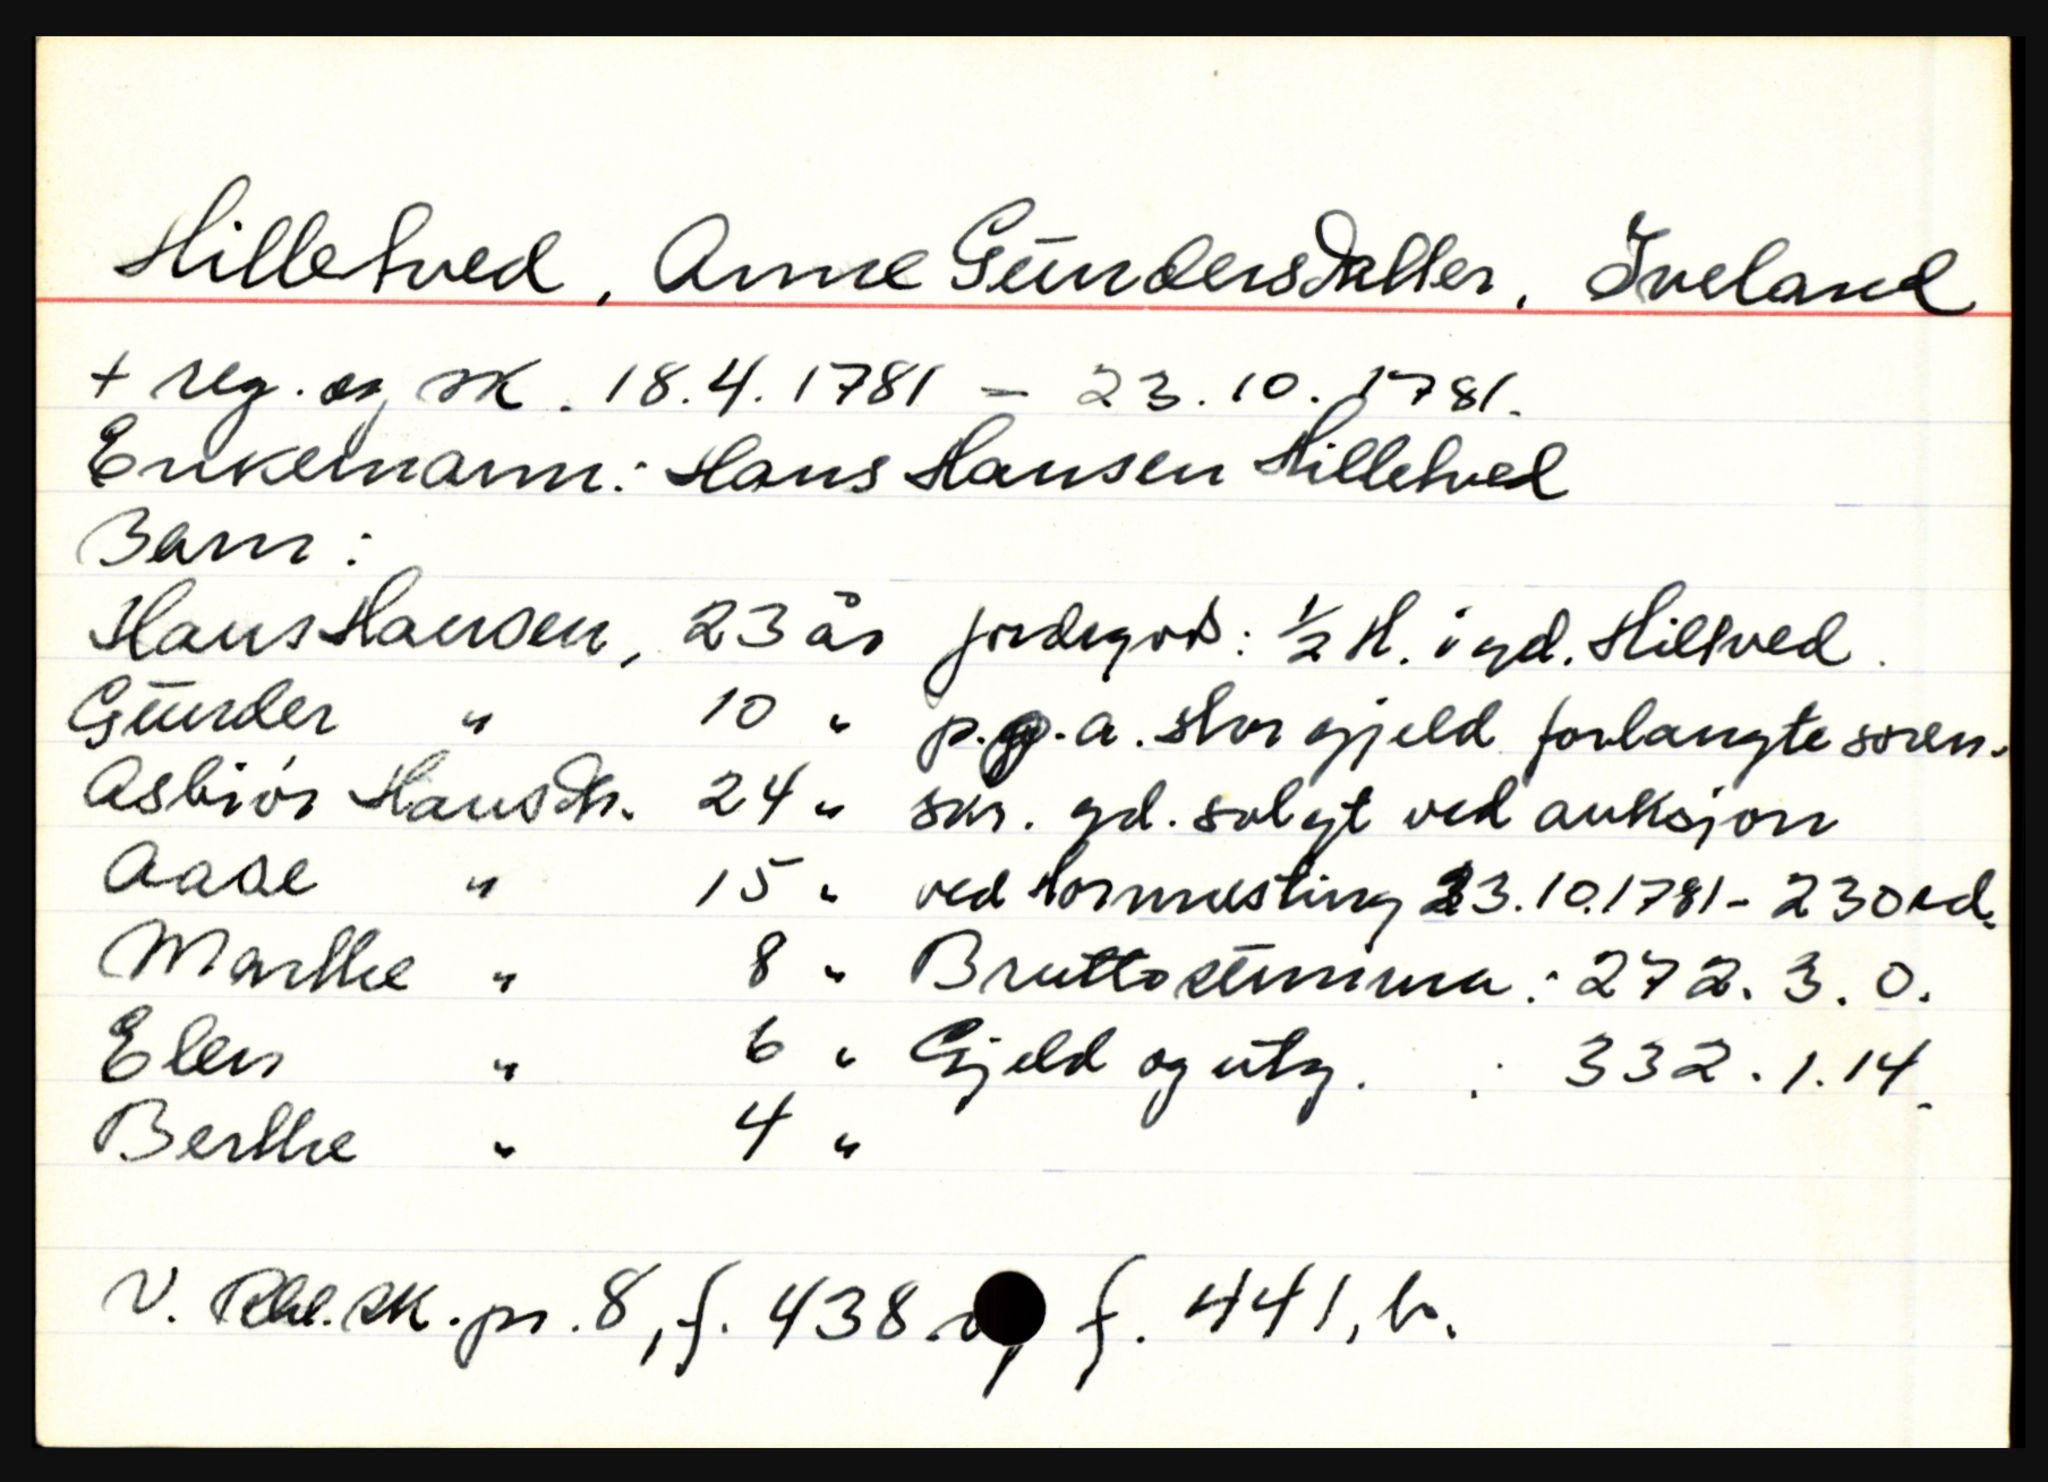 Hilletved, Anne Gundersdatter, Iveland
+ reg. og sk. 18.4.1781 - 23.10.1781.
Enkemann: Hans Hansen Hilletved
Barn:
Hans Hansen, 23 år jordegods: 1/2 H. i gd. Hiltved.
Gunder " 10 " p.g.a. stor gjeld forlangte soren-
Asbiør Hansdtr. 24 " skr. gd. solgt ved auksjon
Aase " 15 " ved Hornnesting 23.10.1781 - 230 rd.
Marthe " 8 " Bruttosumma: 272.3.0.
Elen " 6 " Gjeld og utg. : 332.1.14.
Berthe " 4 "
V. Rbl. sk. pr. 8, f. 438 f. 441, b.